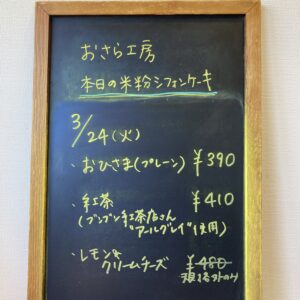 おさら工房
本日の米粉シフォンケーキ
3/24(火)
・おひさま(プレーン) ¥390
・紅茶 ¥410
(ブンブン紅茶店さん
"アールグレイ"使用)
・レモン&
クリームチーズ ¥480
のみ